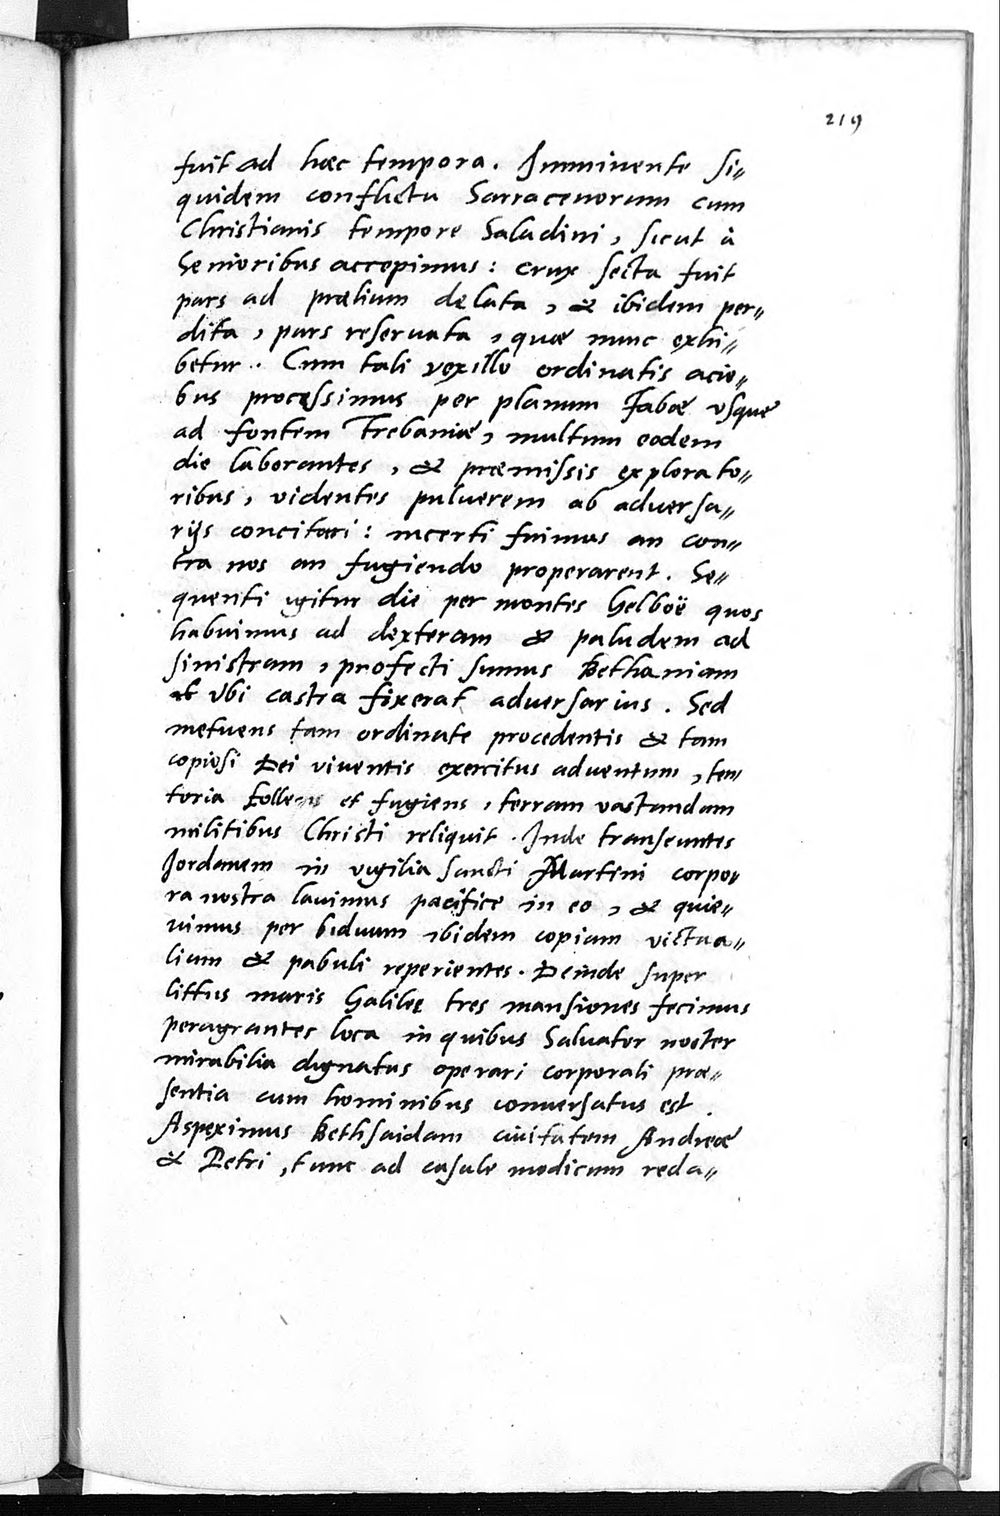 219
fuit ad hæc tempora. Imminente si„
quidem conflictu Sarracenorum cum
Christianis tempore Saladini, sicut à
Senioribus accepimus: crux secta fuit
pars ad prælium delata, & ibidem per„
dita, pars reseruata, quæ nunc exhi„
betur. Cum tali vexillo ordinatis acie„
bus processimus per planum Fabæ vsque
ad fontem Trebaniæ, multum eodem
die laborantes, & præmissis explorato„
ribus, videntes puluerem ab aduersa„
rijs concitari: incerti fuimus an con„
tra nos an fugiendo properarent. Se„
quenti igitur die per montes Gelboë quos
habuimus ad dexteram & paludem ad
sinistram, profecti sumus Bethaniam
vbi castra fixerat aduersarius. Sed
metuens tam ordinate procedentis & tam
copiosi Dei viuentis exercitus aduentum, ten„
toria tollens et fugiens, terram vastandam
militibus Christi reliquit. Inde transeuntes
Jordanem in vigilia sancti Martini corpo„
ra nostra lauimus pacifice in eo, & quie„
uimus per biduum ibidem copiam victua„
lium & pabuli reperientes. Deinde super
littus maris Galileę tres mansiones fecimus
peragrantes loca in quibus Saluator noster
mirabilia dignatus operari corporali præ„
sentia cum hominibus conuersatus est.
Aspeximus Bethsaidam ciuitatem Andreæ
& Petri, tunc ad casale modicum reda„